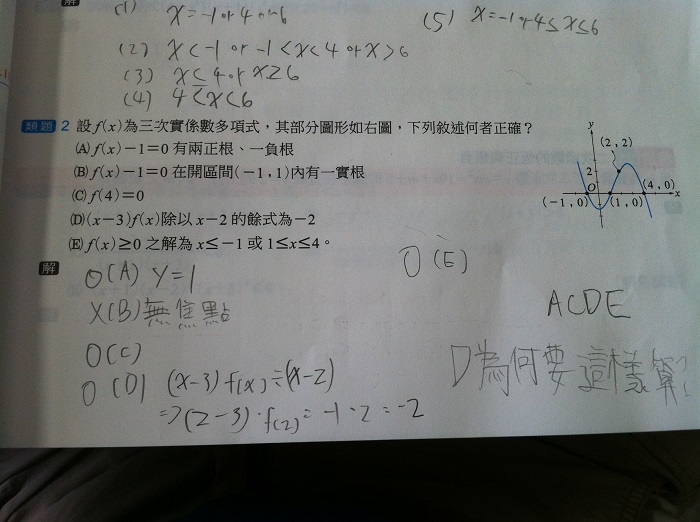 解
(1) x=-1 or 4
(5) x=-1 or 4≤x≤6
(2) x<-1 or -1<x<4 or x>6
(3) x≤4 or x≥6
(4) 4<x<6
類題 2 設f(x)為三次實係數多項式，其部分圖形如右圖，下列敘述何者正確？
(A)f(x)-1=0有兩正根、一負根
(B)f(x)-1=0在開區間(-1,1)內有一實根
(C)f(4)=0
(D)(x-3)f(x)除以x-2的餘式為-2
(E)f(x)≥0之解為x≤-1或1≤x≤4。
y
(2,2)
2
O
(4,0)
x
(-1,0)
(1,0)
解
O(A) y=1
O(E)
X(B)無焦點
ACDE
O(C)
O(D) (x-3)f(x)÷(x-2)
=>(2-3)·f(2)=-1·2=-2
D為何要這樣算?